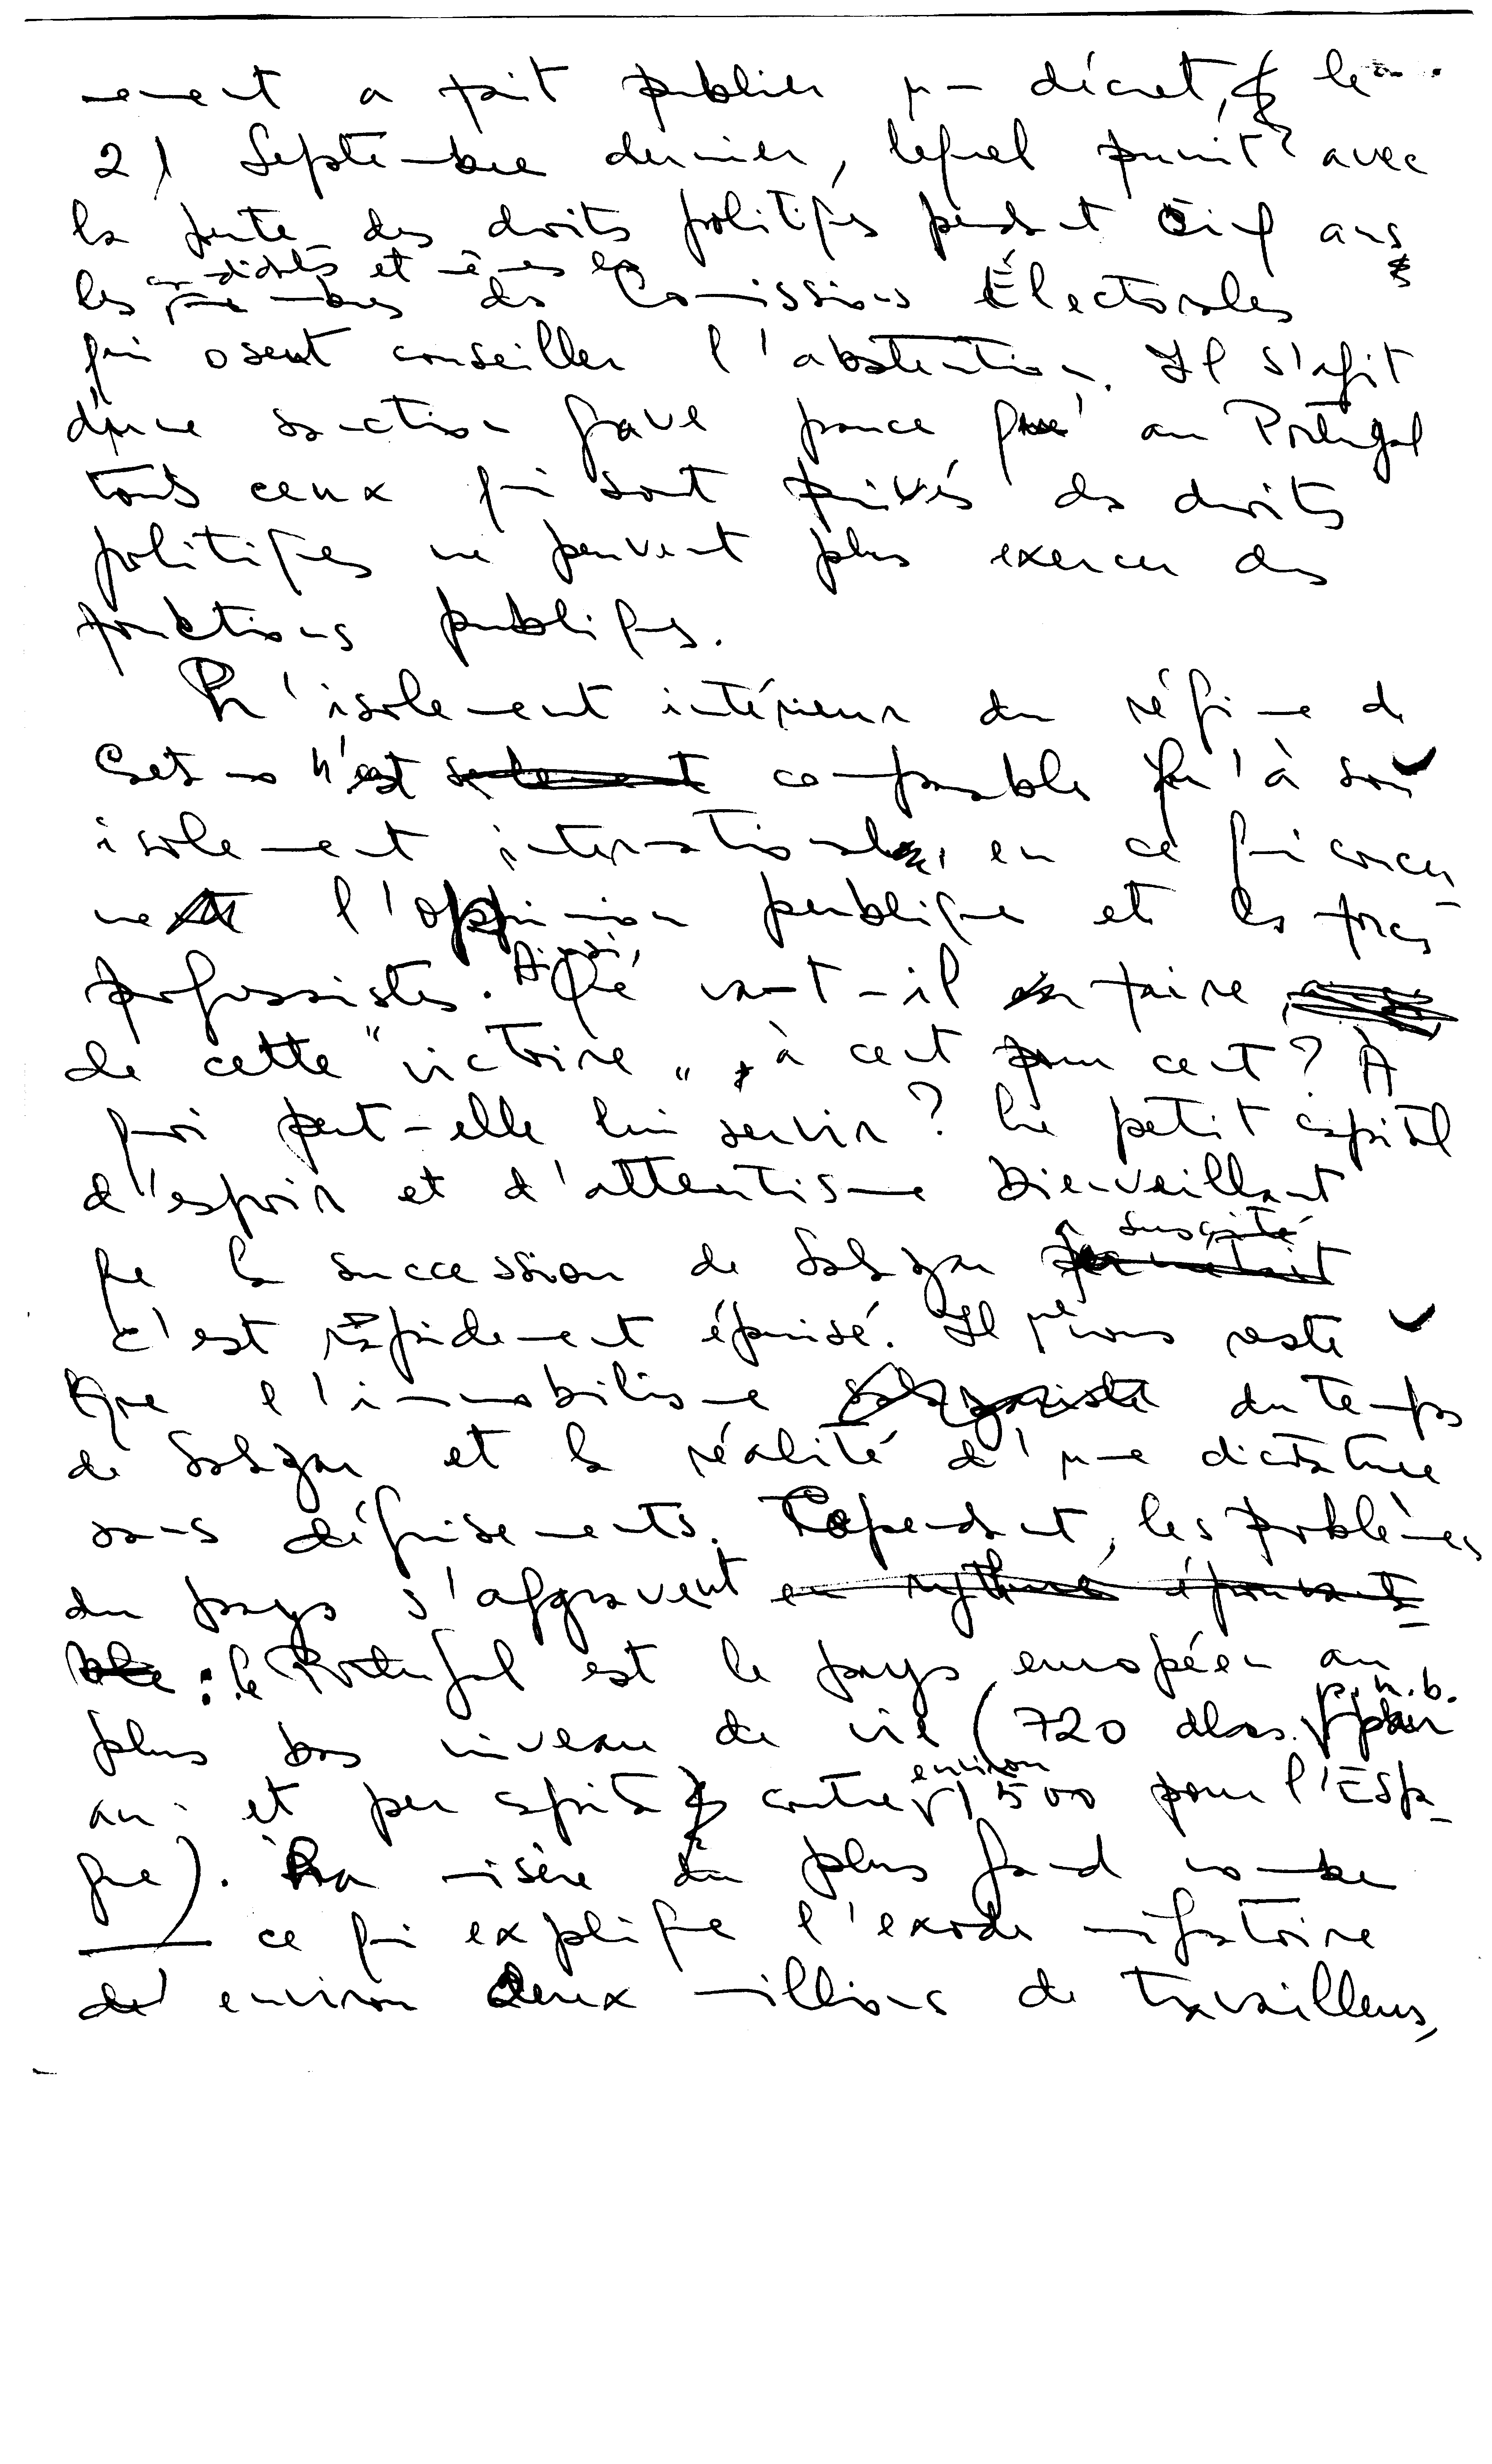 -ement a fait publier un décret, le
21 Septembre dernier, lequel punit avec
la perte des droits politiques pendant cinq ans
candidats et mêmes les
les membres des Comissions Électorales
qui osent conseiller l'abstention. Il s'agit
d'une sanction grave parce que au Portugal
tous ceux qui sont privés des droits
politiques ne peuvent plus exercer des
fonctions publiques.
L'isolement intérieur du régime de
Caetano n'est seulement comparable qu'à son
isolement international, en ce qui concer-
ne l'oppinion publique et les forces
progressistes. Ainsi, Que va-t-il en faire
de cette "victoire", à cent pour cent? À
quoi peut-elle lui servir? Le petit capital
d'espoir et d'attentisme bienveillant
a suscité
que la succession de Salazar permettait
c'est rapidement épuisé. Il ne nous reste
que l'immobilisme salazariste du temps
de Salazar et la réalité d'une dictature
sans déguisements. Cependant, les problèmes
du pays s'aggravent en rythme épouvanta-
ble : le Portugal est le pays européen au
p.n.b.
plus bas niveau de vie (720 dlars. par
environ
an et per capita contre 1500 pour l'Espa-
gne). La misère du plus grand nombre
ce qui explique l'exode migratoire
de environ deux millions de travailleurs,